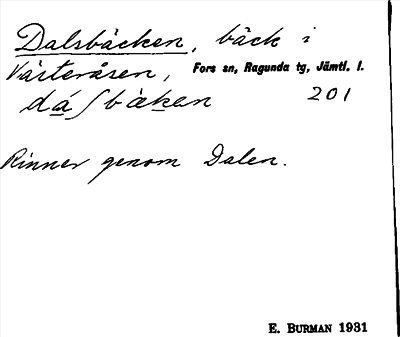 Dalsbäcken, bäck i
Västeråsen, Fors sn, Ragunda tg, Jämtl. l.
dáʃbäken 201
Rinner genom Dalen.
E. BURMAN 1931